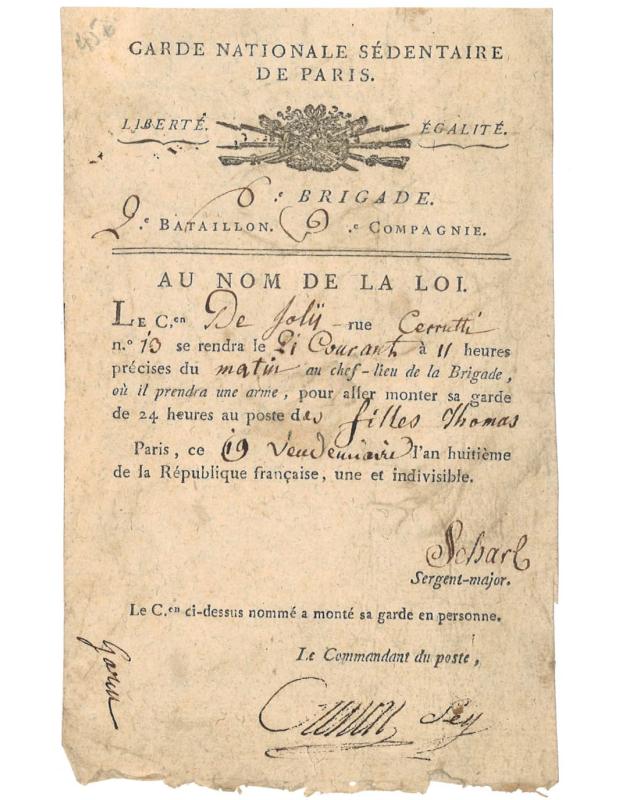 GARDE NATIONALE SÉDENTAIRE
DE PARIS.
LIBERTÉ. ÉGALITÉ.
6.e BRIGADE.
2.e BATAILLON. 6.e COMPAGNIE.
AU NOM DE LA LOI.
LE C.en De Jolÿ rue Cerrutti
n.º 13 se rendra le 21 Courant à 11 heures
précises du matin au chef-lieu de la Brigade,
où il prendra une arme, pour aller monter sa garde
de 24 heures au poste des filles Thomas
Paris, ce 19 Vendemiaire l'an huitième
de la République française, une et indivisible.
Scharl
Sergent-major.
Le C.en ci-dessus nommé a monté sa garde en personne.
Le Commandant du poste,